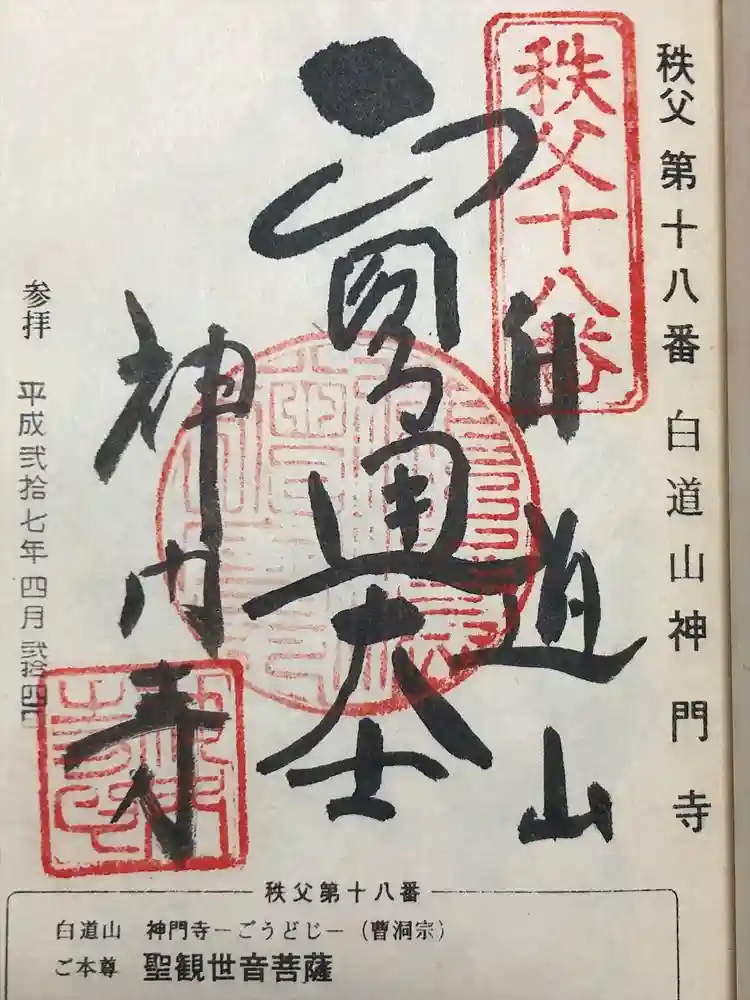 秩父 第十八番 白道山 神門寺
秩父十八番
白道山
圓通大士
神門寺
参拝 平成弐拾七年四月弐拾四日
秩父第十八番
白道山 神門寺−ごうどじ−（曹洞宗）
ご本尊 聖観世音菩薩